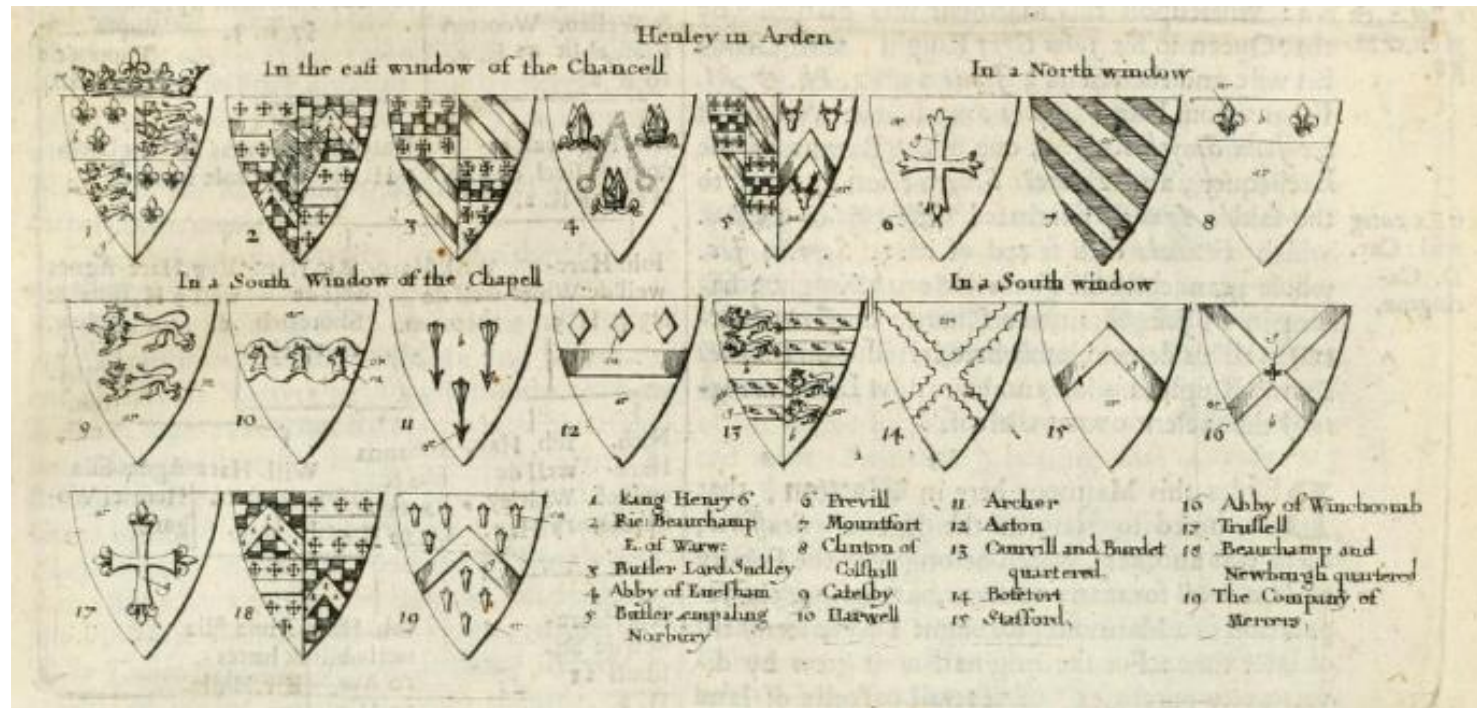 Henley in Arden
In the east window of the Chancell
In a North window
1
2
3
4
5
6
7
8
In a South Window of the Chapell
In a South window
9
10
11
12
13
14
15
16
17
18
19
1 King Henry 6
2 Ric Beauchamp
E. of Warw:
3 Butler Lord Sudley
4 Abby of Euesham
5 Butler empaling
Norbury
6 Frevill
7 Mountfort
8 Clinton of
Colshill
9 Catesby
10 Harwell
11 Archer
12 Aston
13 Camvill and Burdet
quartered
14 Botetort
15 Stafford
16 Abby of Winchcomb
17 Trussell
18 Beauchamp and
Newburgh quartered
19 The Company of
Mercers